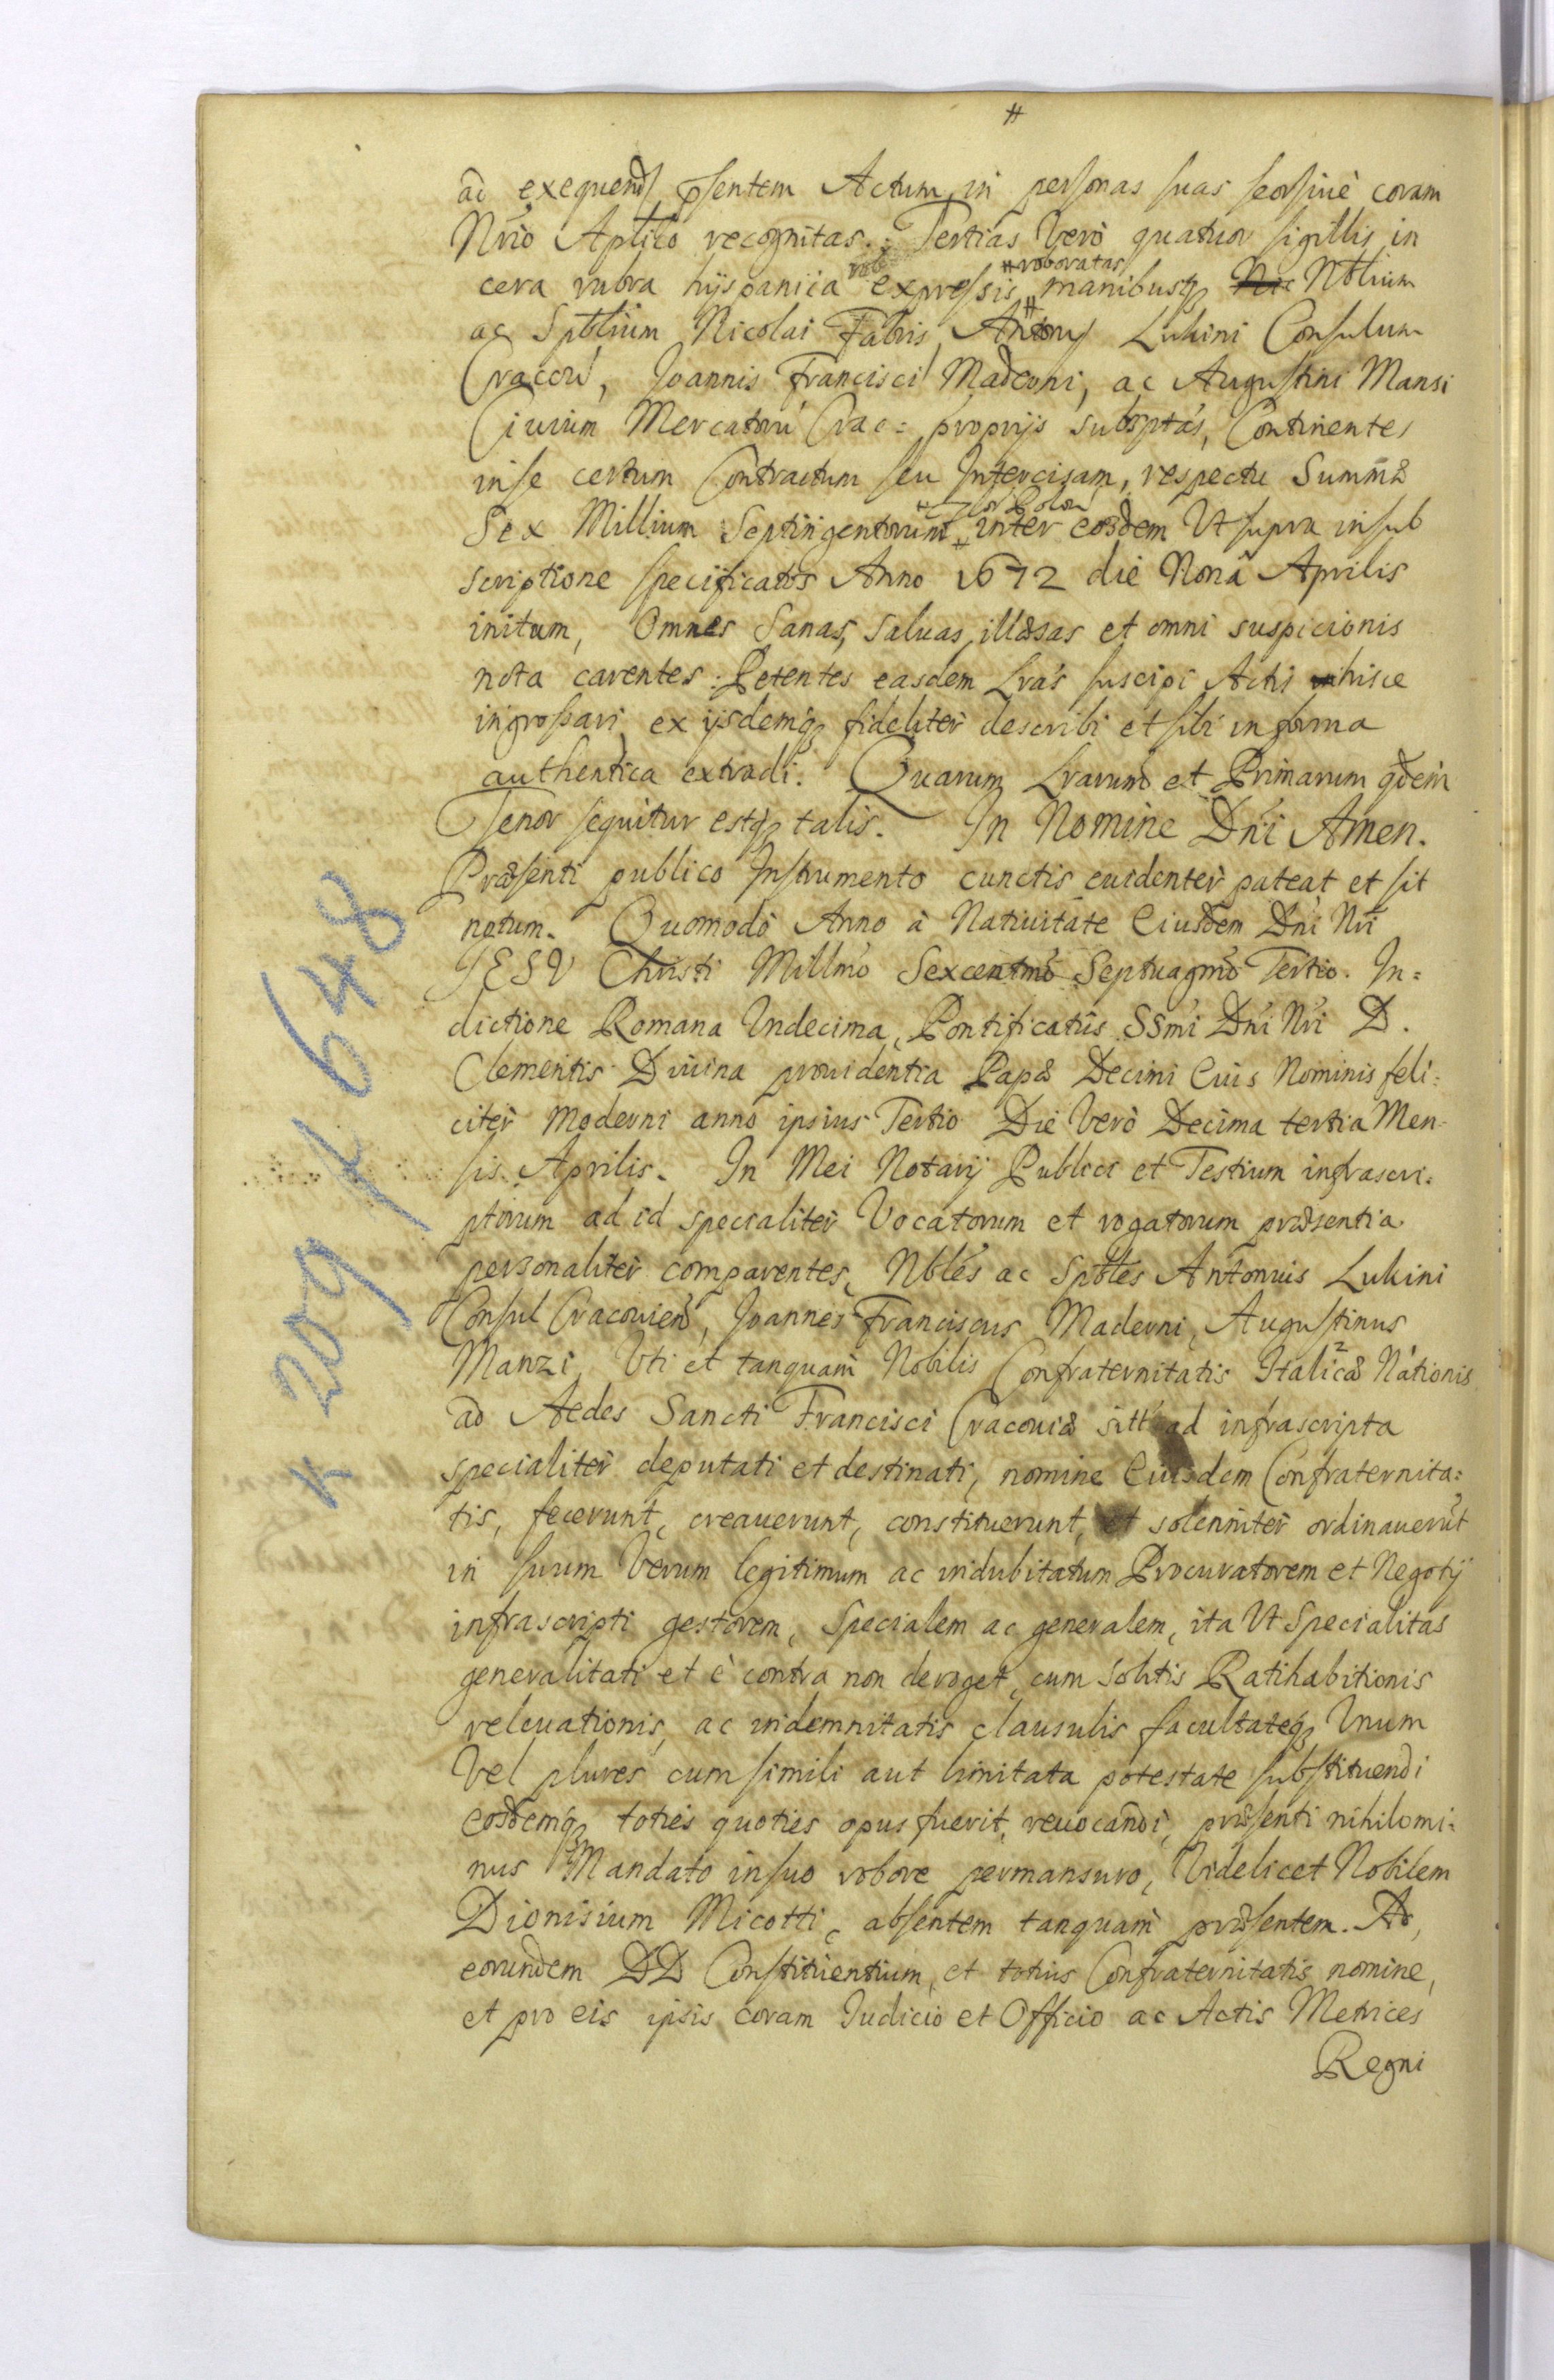 #
ad exequend pſentem Actum in perſonas ſuas ſeorſiuè coram
Nrio Aplico recognitas. Tertias Verò quatuor ſigillis in
cera rubra hijspanica expreſsis # #roboratas manibusq Nblium
ac Spblium Nicolai Fabris, Antony Lukini Conſulum
Craccou, Joannis Franciſci Maderni, ac Auguſtini Mansi
Ciuium Mercatorũ Crac= proprijs subsptas, Continentes
inſe certum Contractum ſeu Intercisam, respectu Summæ
Sex Millium Septingentorum # flor Polon inter eosdem Vt ſupra inſub
scriptione ſpecificatos Anno 1672 die Nonâ Aprilis
initum, Omnes Sanas, saluas, illæsas et omni suspicionis
nota carentes. Petentes easdem Lrás ſuscipi Actis hisce
ingroſsari, ex ijsdemq fideliter describi et ſibi in forma
authentica extradi. Quarum Lrarum et Primarum qdem
Tenor ſequitur estq talis. In Nomine Dni Amen.
Præſenti publico Inſtrumento cunctis euidentèr pateat et ſit
notum. Quomodò Anno à Natiuitate Eiusdem Dni Nri
JESV Christi Millmo Sexcentmo Septuagmo Tertio. In=
dictione Romana Vndecima, Pontificatûs SSmi Dni Nri D.
Clementis Diuina prouidentia Papæ Decimi Eius Nominis feli=
citèr Moderni anno ipsius Tertio Die Verò Decima tertia Men=
ſis Aprilis. In Mei Notarij Publici et Testium infrascri=
ptorum ad id specialitèr Vocatorum et rogatorum præsentia
personalitèr comparentes, Nbles ac Spbles Antonius Lukini
Conſul Cracouien, Joannes Franciscus Maderni, Auguſtinus
Manzi, Vti et tanquam Nobilis Confraternitatis Italicæ Nátionis
ad Aedes Sancti Francisci Cracouiæ sitt ad infrascripta
specialitèr deputati et destinati, nomine Eiusdem Confraternita=
tis, fecerunt, creauerunt, constituerunt, et solennitèr ordinauerũt
in ſuum Verum legitimum ac indubitatum Procuratorem et Negotij
infrascripti gestorem, Specialem ac generalem, ita Vt Specialitas
generalitati et è contra non deroget, cum Solitis Ratihabitionis
releuationis, ac indemnitatis clausulis facultateq Vnum
Vel plures cum ſimili aut limitata potestate ſubſtituendi
eosdemq toties quoties opus fuerit, reuocandi, præſenti nihilomi=
nus Mandato inſuo robore permansuro, Videlicet Nobilem
Dionisium Micotti, abſentem tanquam præſentem. Ad
eorundem DD Conſtituentium, et totius Confraternitatis nomine,
et pro eis ipsis coram Iudicio et Officio ac Actis Metrices
Regni
K 209 f 648